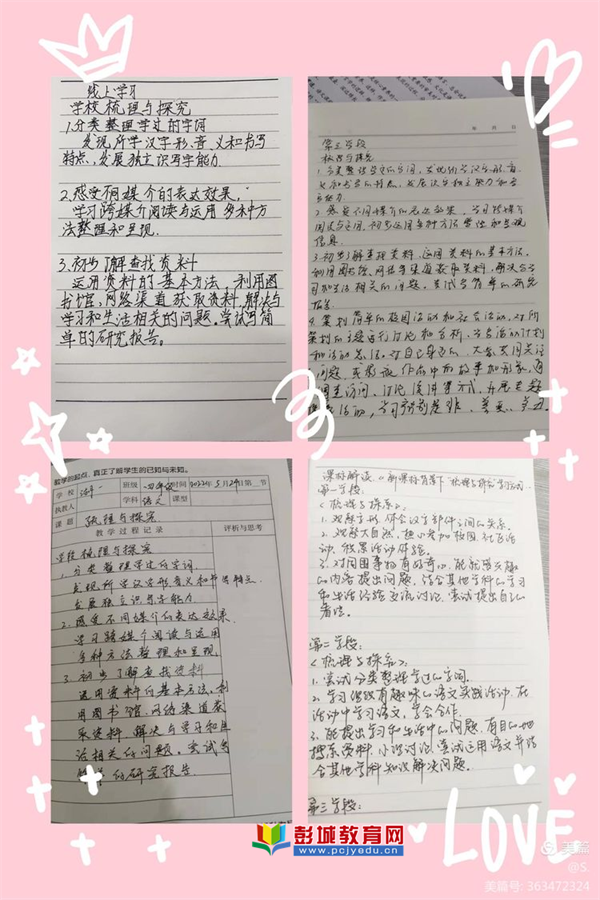 线上学习
学校梳理与探究
1.分类整理学过的字词
发现所学汉字形、音、义和书写
特点,发展独立识写字能力
2.感受不同媒介的表达效果,
学习跨媒介阅读与运用,多种方
法整理和呈现.
3.初步了解查找资料
运用资料的基本方法,利用图
书馆,网络渠道获取资料,解决与
学习和生活相关的问题,尝试写简
单的研究报告。
第三学段
梳理与探究
1.分类整理学过的字词,发现所学汉字形、音、
义和书写的特点,发展独立识字能力和写
字能力
2.感受不同媒介的表达效果,学习跨媒介
阅读与运用,初步运用多种方法整理和呈现
信息.
3.初步了解查找资料,运用资料的基本方法,
利用图书馆、网络等渠道获取资料,解决与学
习和生活相关的问题,尝试写简单的研究
报告
4.策划简单的校园活动和社会活动,对所
策划的主题进行讨论和分析,学写活动计划
和活动总结,对自己身边的、大家共同关注
问题,
教学的起点,真正了解学生的已知与未知。
学校
班级 四年级 时间 2022年5月29日第 节
执教人
学科 语文 课型
课题 梳理与探究
教学过程记录
评析与思考
学校梳理与探究
1.分类整理学过的字词
发现所学汉字形音义和书写特点
发展独立识写字能力
2.感受不同媒介的表达效果,
学习跨媒介阅读与运用
多种方法整理和呈现.
3.初步了解查找资料
运用资料的基本方法,利
用图书馆、网络渠道获
取资料,解决与学习和生
活相关的问题,尝试写
简单的研究报告
课标解读《新课标背景下"梳理与探究"学习方式
第一学段:
<梳理与探究>
1.观察字形,体会汉字部件之间的关系.
2.观察大自然,热心参加校园、社区活
动,积累活动体验.
3.对周围事物有好奇心,能就感兴趣
的内容提出问题,结合其他学科的学习
和生活经验交流讨论,尝试提出自己的
看法.
第二学段:
<梳理与探究>
1.尝试分类整理学过的字词.
2.学习组织有趣味的语文实践活动,在
活动中学习语文,学会合作.
3.能提出学习和生活中的问题,有目的地
搜集资料,小组讨论,尝试运用语文并结
合其他学科知识解决问题.
第三学段:
彭城教育网
www.pcjyedu.cn
LOVE
美篇
@S
美篇号: 363472324